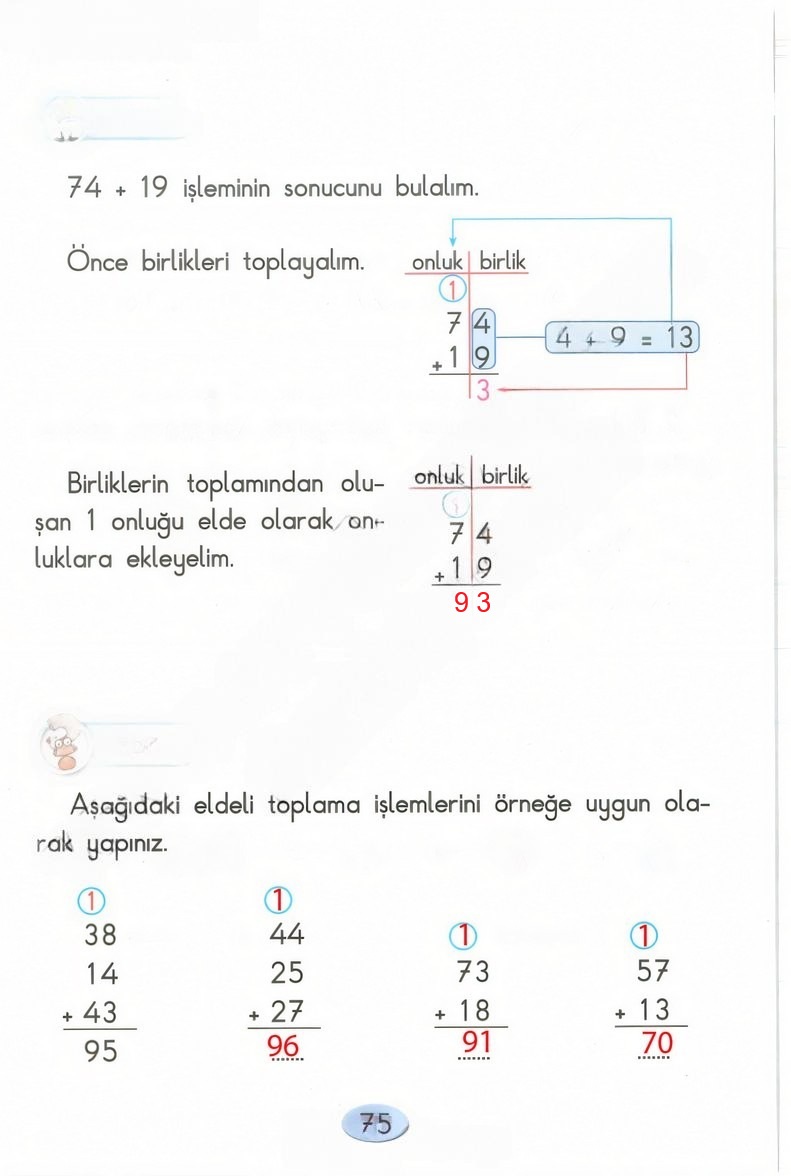 74 + 19 işleminin sonucunu bulalım.
Önce birlikleri toplayalım.
onluk birlik
1
7 4
4 + 9 = 13
+ 1 9
3
Birliklerin toplamından olu-
şan 1 onluğu elde olarak on-
luklara ekleyelim.
onluk birlik
7 4
+ 1 9
9 3
Aşağıdaki eldeli toplama işlemlerini örneğe uygun ola-
rak yapınız.
1 1 1 1
38 44 73 57
14 25 + 18 + 13
+ 43 + 27 91 70
95 96
75